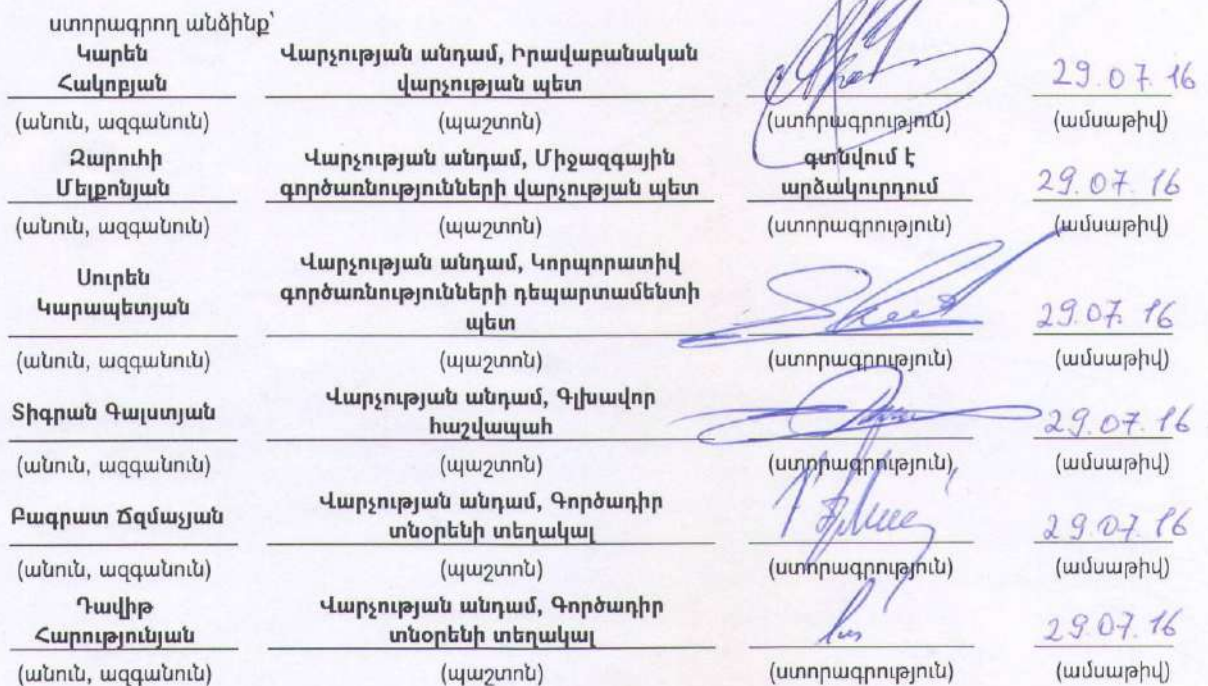 ստորագրող անձինք՝
Կարեն Վարչության անդամ, Իրավաբանական
Հակոբյան վարչության պետ 29.07.16
(անուն, ազգանուն) (պաշտոն) (ստորագրություն) (ամսաթիվ)
Զարուհի Վարչության անդամ, Միջազգային գտնվում է
Մելքոնյան գործառնությունների վարչության պետ արձակուրդում 29.07.16
(անուն, ազգանուն) (պաշտոն) (ստորագրություն) (ամսաթիվ)
Վարչության անդամ, Կորպորատիվ
Սուրեն գործառնությունների դեպարտամենտի
Կարապետյան պետ 29.07.16
(անուն, ազգանուն) (պաշտոն) (ստորագրություն) (ամսաթիվ)
Տիգրան Գալստյան Վարչության անդամ, Գլխավոր
հաշվապահ 29.07.16
(անուն, ազգանուն) (պաշտոն) (ստորագրություն) (ամսաթիվ)
Բագրատ Ճզմաչյան Վարչության անդամ, Գործադիր
տնօրենի տեղակալ 29.07.16
(անուն, ազգանուն) (պաշտոն) (ստորագրություն) (ամսաթիվ)
Դավիթ Վարչության անդամ, Գործադիր
Հարությունյան տնօրենի տեղակալ 29.07.16
(անուն, ազգանուն) (պաշտոն) (ստորագրություն) (ամսաթիվ)